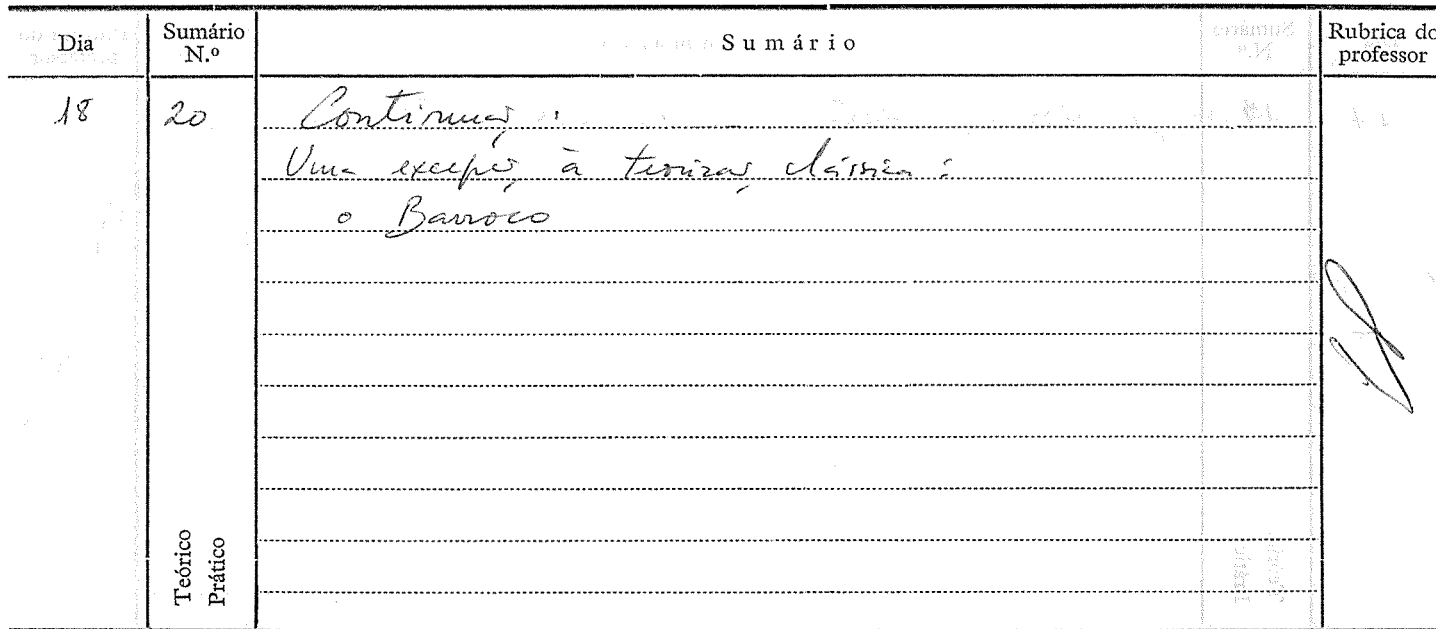 Dia
Sumário N.º
Sumário
Rubrica do professor
18
20
Continuação :
Uma excepção à teorização clássica :
o Barroco
Teórico
Prático